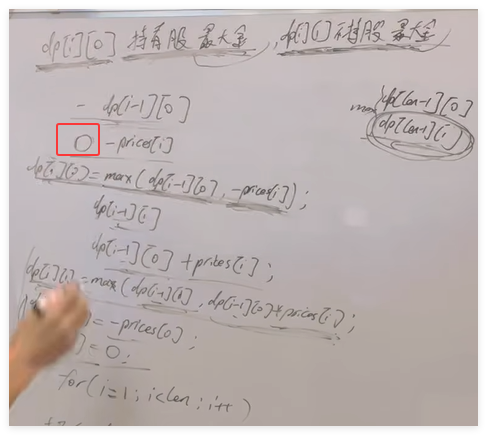 dp[i][0] 持有股 最大金, dp[i][1] 不持有股 最大金
- dp[i-1][0]
max dp[len-1][0]
dp[len-1][1]
0 - prices[i]
dp[i][0] = max(dp[i-1][0], -prices[i]);
dp[i-1][1]
dp[i-1][0] + prices[i];
dp[i][1] = max(dp[i-1][1], dp[i-1][0]+prices[i];
= -prices[0];
] = 0;
for(i=1; i<len; i++)